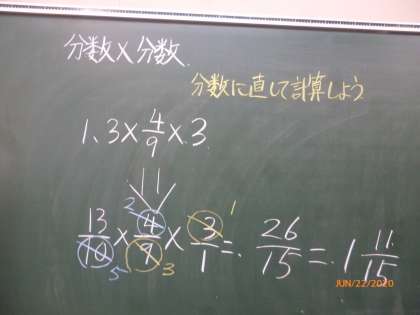 分数×分数.
分数に直して計算しよう
1.3×4/9×3
13/10×4/9×3/1= 26/15=1 11/15
2 1
5 3
JUN/22/2020